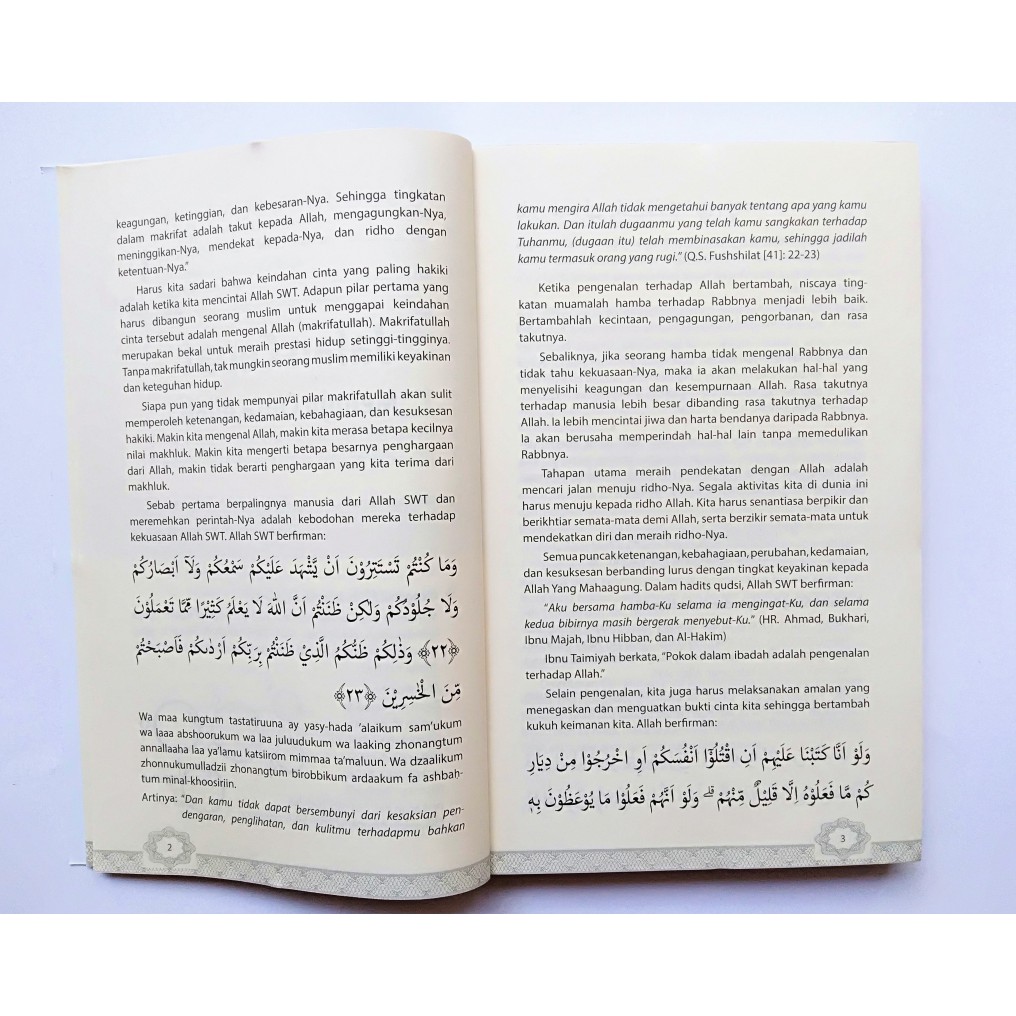 keagungan, ketinggian, dan kebesaran-Nya. Sehingga tingkatan
dalam makrifat adalah takut kepada Allah, mengagungkan-Nya,
meninggikan-Nya, mendekat kepada-Nya, dan ridho dengan
ketentuan-Nya."
Harus kita sadari bahwa keindahan cinta yang paling hakiki
adalah ketika kita mencintai Allah SWT. Adapun pilar pertama yang
harus dibangun seorang muslim untuk menggapai keindahan
cinta tersebut adalah mengenal Allah (makrifatullah). Makrifatullah
merupakan bekal untuk meraih prestasi hidup setinggi-tingginya.
Tanpa makrifatullah, tak mungkin seorang muslim memiliki keyakinan
dan keteguhan hidup.
Siapa pun yang tidak mempunyai pilar makrifatullah akan sulit
memperoleh ketenangan, kedamaian, kebahagiaan, dan kesuksesan
hakiki. Makin kita mengenal Allah, makin kita merasa betapa kecilnya
nilai makhluk. Makin kita mengerti betapa besarnya penghargaan
dari Allah, makin tidak berarti penghargaan yang kita terima dari
makhluk.
Sebab pertama berpalingnya manusia dari Allah SWT dan
meremehkan perintah-Nya adalah kebodohan mereka terhadap
kekuasaan Allah SWT. Allah SWT berfirman:
وَمَا كُنْتُمْ تَسْتَتِرُوْنَ اَنْ يَّشْهَدَ عَلَيْكُمْ سَمْعُكُمْ وَلَآ اَبْصَارُكُمْ
وَلَا جُلُوْدُكُمْ وَلٰكِنْ ظَنَنْتُمْ اَنَّ اللّٰهَ لَا يَعْلَمُ كَثِيْرًا مِّمَّا تَعْمَلُوْنَ
﴿٢٢﴾ وَذٰلِكُمْ ظَنُّكُمُ الَّذِيْ ظَنَنْتُمْ بِرَبِّكُمْ اَرْدٰىكُمْ فَاَصْبَحْتُمْ
مِّنَ الْخٰسِرِيْنَ ﴿٢٣﴾
Wa maa kungtum tastatiruuna ay yasy-hada 'alaikum sam'ukum
wa laaa abshoorukum wa laa juluudukum wa laaking zhonangtum
annallaaha laa ya'lamu katsiirom mimmaa ta'maluun. Wa dzaalikum
zhonnukumulladzii zhonangtum birobbikum ardaakum fa ashbah-
tum minal-khoosiriin.
Artinya: "Dan kamu tidak dapat bersembunyi dari kesaksian pen-
dengaran, penglihatan, dan kulitmu terhadapmu bahkan
2
kamu mengira Allah tidak mengetahui banyak tentang apa yang kamu
lakukan. Dan itulah dugaanmu yang telah kamu sangkakan terhadap
Tuhanmu, (dugaan itu) telah membinasakan kamu, sehingga jadilah
kamu termasuk orang yang rugi." (Q.S. Fushshilat [41]: 22-23)
Ketika pengenalan terhadap Allah bertambah, niscaya ting-
katan muamalah hamba terhadap Rabbnya menjadi lebih baik.
Bertambahlah kecintaan, pengagungan, pengorbanan, dan rasa
takutnya.
Sebaliknya, jika seorang hamba tidak mengenal Rabbnya dan
tidak tahu kekuasaan-Nya, maka ia akan melakukan hal-hal yang
menyelisihi keagungan dan kesempurnaan Allah. Rasa takutnya
terhadap manusia lebih besar dibanding rasa takutnya terhadap
Allah. Ia lebih mencintai jiwa dan harta bendanya daripada Rabbnya.
Ia akan berusaha memperindah hal-hal lain tanpa memedulikan
Rabbnya.
Tahapan utama meraih pendekatan dengan Allah adalah
mencari jalan menuju ridho-Nya. Segala aktivitas kita di dunia ini
harus menuju kepada ridho Allah. Kita harus senantiasa berpikir dan
berikhtiar semata-mata demi Allah, serta berzikir semata-mata untuk
mendekatkan diri dan meraih ridho-Nya.
Semua puncak ketenangan, kebahagiaan, perubahan, kedamaian,
dan kesuksesan berbanding lurus dengan tingkat keyakinan kepada
Allah Yang Mahaagung. Dalam hadits qudsi, Allah SWT berfirman:
"Aku bersama hamba-Ku selama ia mengingat-Ku, dan selama
kedua bibirnya masih bergerak menyebut-Ku." (HR. Ahmad, Bukhari,
Ibnu Majah, Ibnu Hibban, dan Al-Hakim)
Ibnu Taimiyah berkata, "Pokok dalam ibadah adalah pengenalan
terhadap Allah."
Selain pengenalan, kita juga harus melaksanakan amalan yang
menegaskan dan menguatkan bukti cinta kita sehingga bertambah
kukuh keimanan kita. Allah berfirman:
وَلَوْ اَنَّا كَتَبْنَا عَلَيْهِمْ اَنِ اقْتُلُوْٓا اَنْفُسَكُمْ اَوِ اخْرُجُوْا مِنْ دِيَارِ
كُمْ مَّا فَعَلُوْهُ اِلَّا قَلِيْلٌ مِّنْهُمْ ۗ وَلَوْ اَنَّهُمْ فَعَلُوْا مَا يُوْعَظُوْنَ بِهٖ
3